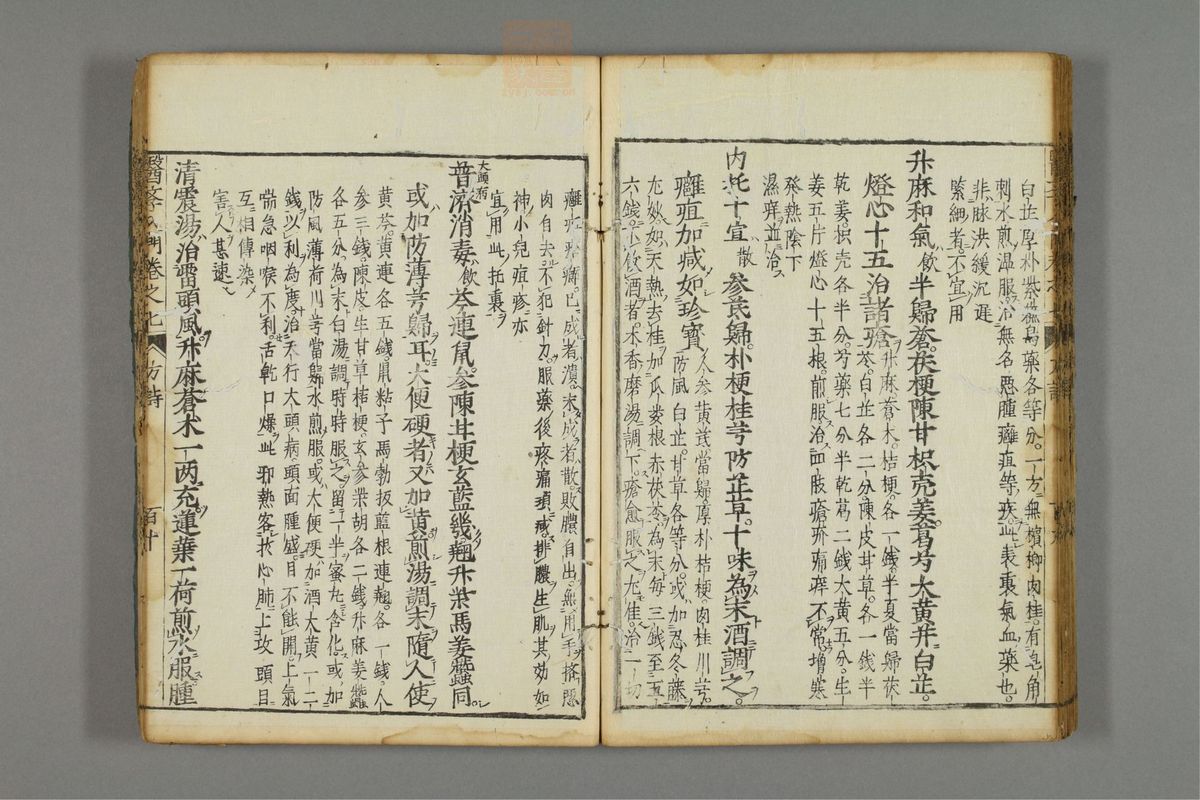 白芷厚朴紫蘇烏藥各等分一方無檳榔肉桂有皂角
刺水煎溫服治無名惡腫癰疽等疾此表裏氣血藥也
非脉洪緩沉遲
緊細者不宜用
升麻和氣飲半歸蒼茯梗陳甘枳壳姜葛芍大黃幷白芷
燈心十五治諸瘡升麻蒼朮桔梗各一錢半夏當歸茯
苓白芷各二分陳皮甘草各一錢半
乾姜枳壳各半分芍藥七分半乾葛二錢大黃五分生
姜五片燈心十五根煎服治血肢瘡疥痛痒不常增寒
發熱陰下
濕痒並治
內托十宜散參芪歸朴梗桂芎防芷草十味為末酒調之
癰疽加減如珍寶人參黃芪當歸厚朴桔梗肉桂川芎
防風白芷甘草各等分或加忍冬藤
尤妙如天熱去桂加瓜蔞根赤茯苓為末每三錢至五
六錢不飲酒者木香磨湯調下瘡愈服之尤佳治一切
癰疽瘡癤已成者潰未成者散敗膿自出無用手擠惡
肉自去不犯針刀服藥後疼痛頓減排膿生肌其効如
神小兒疽疹亦
宜用此托裏
大頭病
普濟消毒飲芩連鼠參陳甘梗玄藍幾翹升柴馬姜蠶同
或加防薄芎歸耳大便硬者又加黃煎湯調末隨人使
黃芩黃連各五錢鼠粘子馬勃板藍根連翹各一錢人
參三錢陳皮生甘草桔梗玄參柴胡各二錢升麻姜蠶
各五分為末白湯調時時服之留一半蜜丸含化或加
防風薄荷川芎當歸水煎服或大便硬加酒大黃一二
錢以利為度治天行大頭病頭面腫盛目不能開上氣
喘急咽喉不利舌乾口燥此邪熱客於心肺上攻頭目
互相傳染
害人甚速
清震湯治雷頭風升麻蒼朮一兩充蓮葉一荷煎水服腫
卷之七
方詩
百十